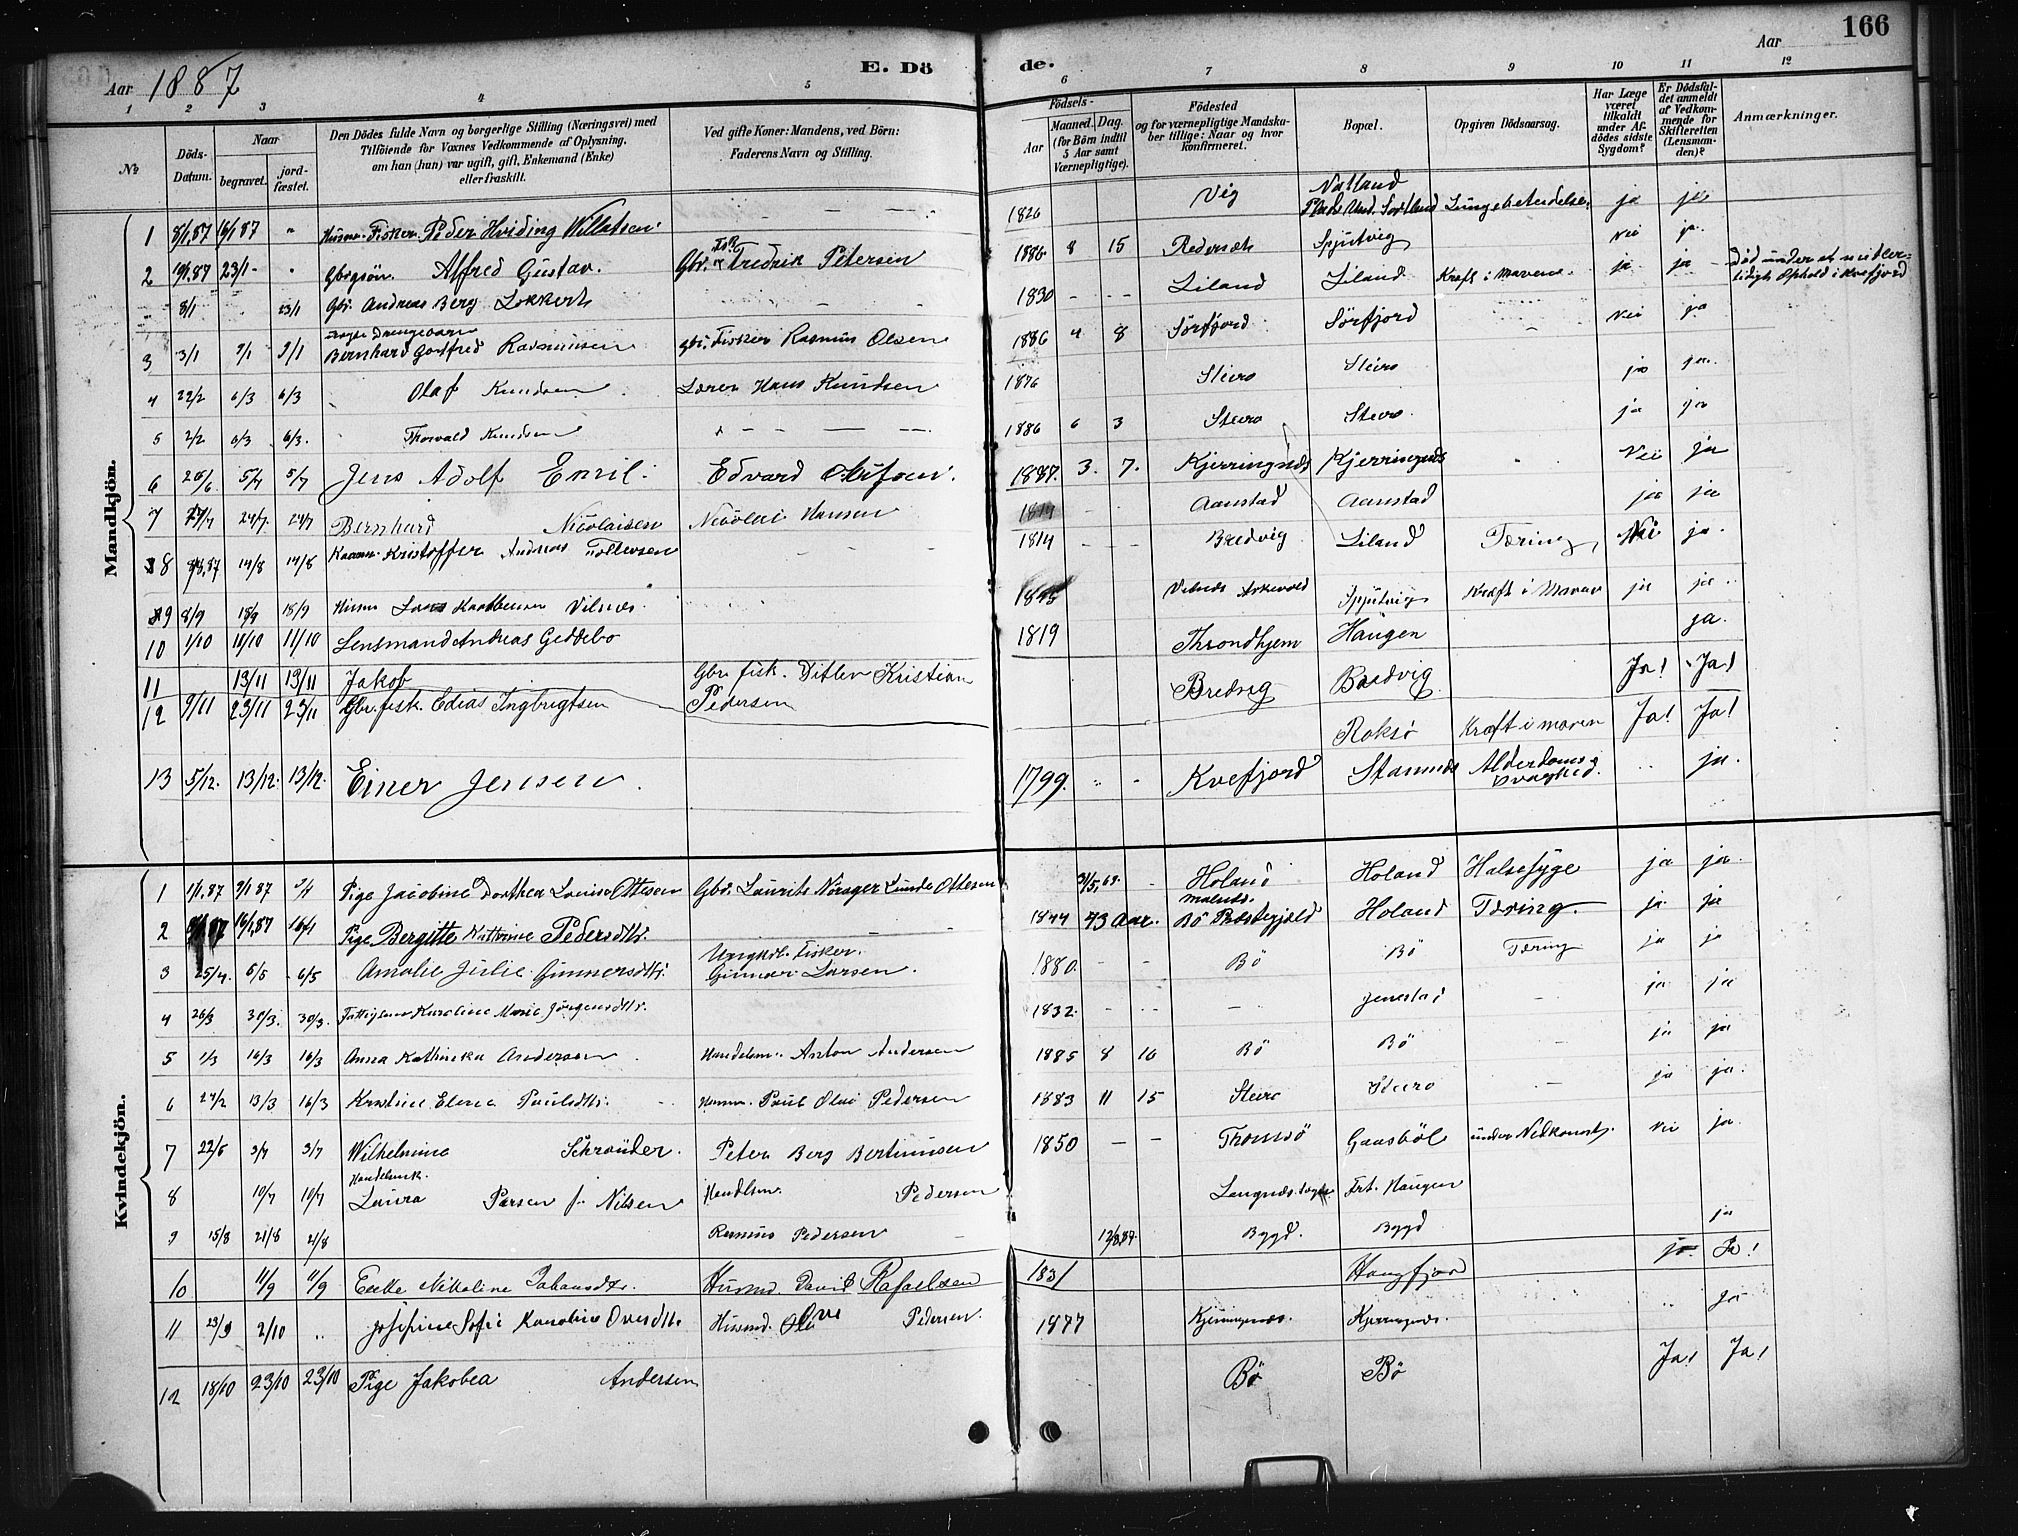 166
Aar 1887
E. Dö de.
Aar
1 2 3 4 5 6 7 8 9 10 11 12
No
Döds-Datum.
Naar
begravet.
jord-fæstet.
Den Dödes fulde Navn og borgerlige Stilling (Næringsvei) med
Tilföiende for Voxnes Vedkommende af Oplysning,
om han (hun) var ugift, gift, Enkemand (Enke)
eller fraskilt.
Ved gifte Koner: Mandens, ved Börn:
Faderens Navn og Stilling.
Födsels-
Aar
Maaned. Dag.
(for Börn indtil
5 Aar samt
Værnepligtige).
Födested
og for værnepligtige Mandska-
ber tillige: Naar og hvor
konfirmeret.
Bopæl.
Opgiven Dödsaarsag.
Har Læge
været
tilkaldt
under Af-
dödes sidste
Sygdom?
Er Dödsfal-
det anmeldt
af Vedkom-
mende for
Skifteretten
(Lensman-
den)?
Anmærkninger.
Mandkjön.
1 8/1.87 16/1 87 " Husm. Fisker. Peder Hviding Willatsen. 1826 Vig Natland ja ja
2 23/1 - " Gbrgsön. Alfred Gustav. Gbr. Fredrik Petersen 1886 8 15 Spjutvig Nei ja
8/1 23/1 Gbr. Andreas Berg Lokkert 1830 - - Liland Liland Kræft i Maven ja ja Död under et midler-
tidigt Ophold i Kvefjord
3 3/1 9/1 9/1 Bernhard Gotfred Rasmusen gbr. Fisker Rasmus Olsen 1886 4 8 Sörfjord Sörfjord - Nei ja
4 22/2 6/3 6/3 Olaf Knudsen Hans Knudsen 1876 Steiro Steiro ja ja
5 2/2 6/3 6/3. Thorvald Knudsen 1886 6 3 Steiro Steiro. ja ja
6 5/7 5/7 Jens Adolf Emil. Edvard 1887. 3. 7. Kjerringnæs Kjerringnæs Nei ja
7 24/7. 24/7 Bernhard Nicolaisen Nicolai Hansen Aanstad Aanstad ja ja
8 14/8 14/8 Kristoffer Andreas Tollevsen 1814 - - Bredvig Liland Tæring Nei ja.
9 8/9 18/9 18/9 Vilnes. Spjutvig Kræft i Maven ja ja
10 1/10 11/10 11/10 Lensmand Andreas Geddebo 1819 Throndhjem Haugen ja.
11 13/11 13/11 Jakob Gbr. fisk. Ditlev Kristian
Pedersen Bredvig Bredvig Ja! Ja!
12 9/11 23/11 23/11 Gbr. fisk. Edias Ingbrigtsen Roksö Kræft i maven Ja! Ja!
13 5/12. 13/12. 13/12. Einer Jensen 1799. " - Kvefjord Stamnæs Alderdoms
svaghed. .. ja.
Kvindekjön.
1 1/1.87 9/1 87 9/1 Pige Jacobine Dorthea Louise Ottesen Gbr. Laurits Nörager Lunde Ottesen - Holand Holand Halsesyge ja ja.
2 16/1.87 16/1 Pige Bergitte Kathrine Pedersdtr. 1844 43 Aar. Malnes.
Bö Præstegjeld Holand Tæring. ja ja
3 25/4. 6/5 6/5 Amalie Julie Gunnersdtr. Ungkrl. Fisker.
Gunnar Larsen. 1880. - - Bö Bö Tæring ja ja
4 26/3 30/3. 30/3. Karoline Marie Jörgensdtr. 1832. - - - Jennestad - ja ja
5 1/3 16/3 16/3 Anna Kathinka Andersen Handelsm. Anton Andersen 1885 8 10 Bö Bö ja ja
6 24/2 13/3 16/3 Kristine Elena Paulsdtr. Husm. Paul Olai Pedersen 1883 11 15 Steiro Steiro - ja ja.
7 22/6 3/7 3/7 Wilhelmine Schrøuder. Peter Berg Bertinusen 1850 - - Thomsö Gaasböl under Nedkomst. Nei ja.
8 10/7 10/7 Handelsmk.
Laura Parsen f. Nilsen Handlsm. Pedersen Langnæs. Sogn Frt. Haugen
9 15/8 21/8 21/8 Rasmus Pedersen 12/8.87. Bygd. Bygd ja
10 11/9 11/9 Enke Nikoline Johansdtr. Husmd. David Rafaelsen 1831 Haugfjord ja. Ja!
11 23/9 2/10 " Josefine Sofie Karoline Ovesdtr. Husmd. Ove Pedersen. 1877 Kjerringnæs. Kjerringnæs. " Ja
12 18/10 23/10 23/10 Pige Jakobea Andersen Bö Bö Ja! Ja!